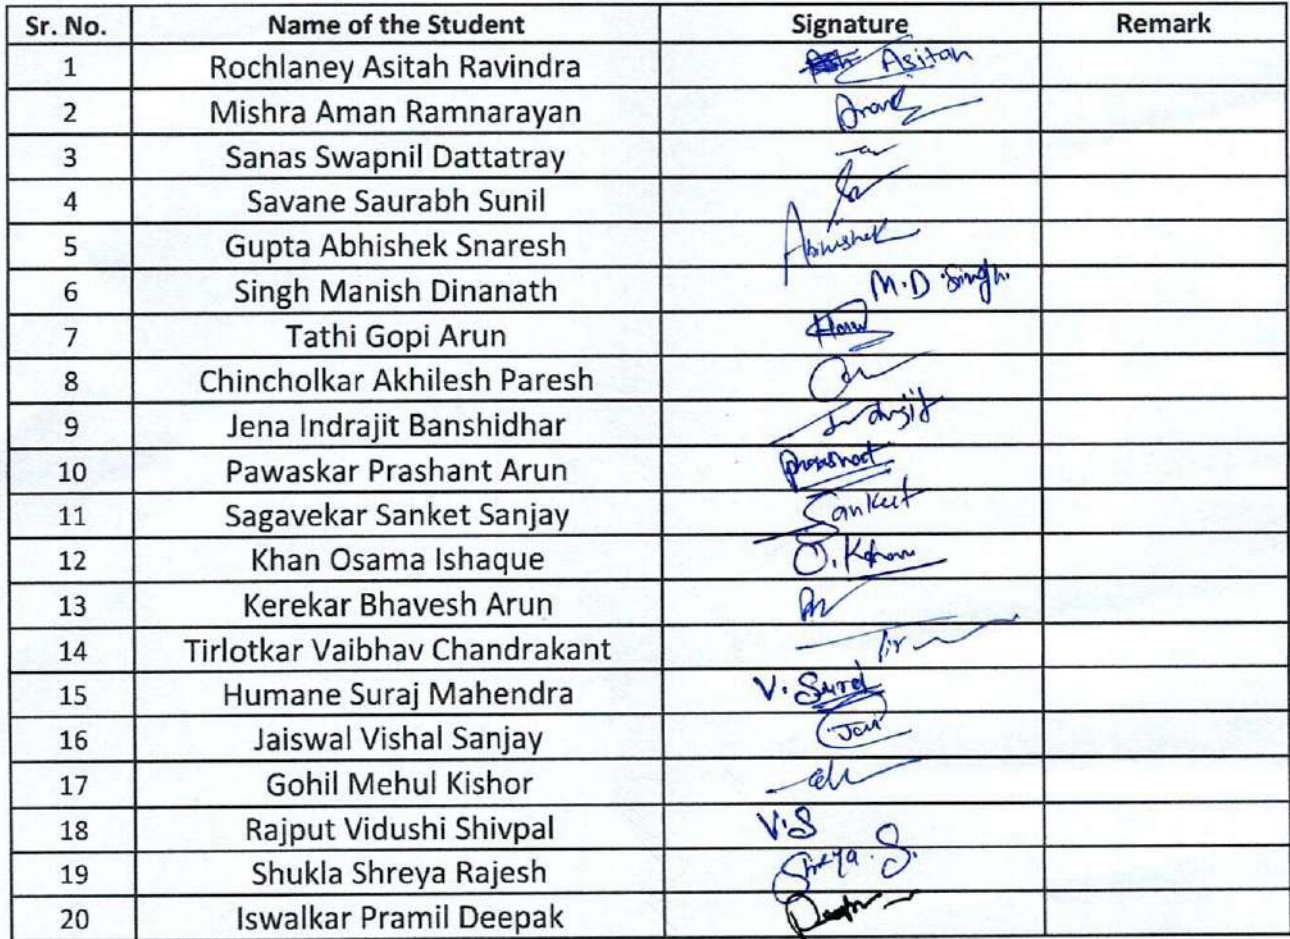 Sr. No. Name of the Student Signature Remark
1 Rochlaney Asitah Ravindra Asitah
2 Mishra Aman Ramnarayan
3 Sanas Swapnil Dattatray
4 Savane Saurabh Sunil
5 Gupta Abhishek Snaresh Abhishek
6 Singh Manish Dinanath M.D Singh.
7 Tathi Gopi Arun
8 Chincholkar Akhilesh Paresh
9 Jena Indrajit Banshidhar Indrajit
10 Pawaskar Prashant Arun
11 Sagavekar Sanket Sanjay Sanket
12 Khan Osama Ishaque O. Khan
13 Kerekar Bhavesh Arun
14 Tirlotkar Vaibhav Chandrakant Tir
15 Humane Suraj Mahendra
16 Jaiswal Vishal Sanjay Jai
17 Gohil Mehul Kishor
18 Rajput Vidushi Shivpal V.S
19 Shukla Shreya Rajesh Shreya. S.
20 Iswalkar Pramil Deepak